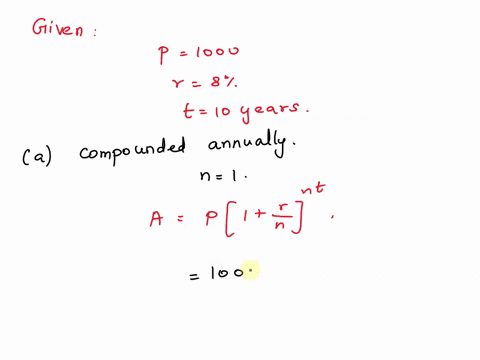 Given :
P = 1000
r = 8%
t = 10 years.
(a) compounded annually.
n = 1.
A = P[1 + r/n]^nt .
= 100